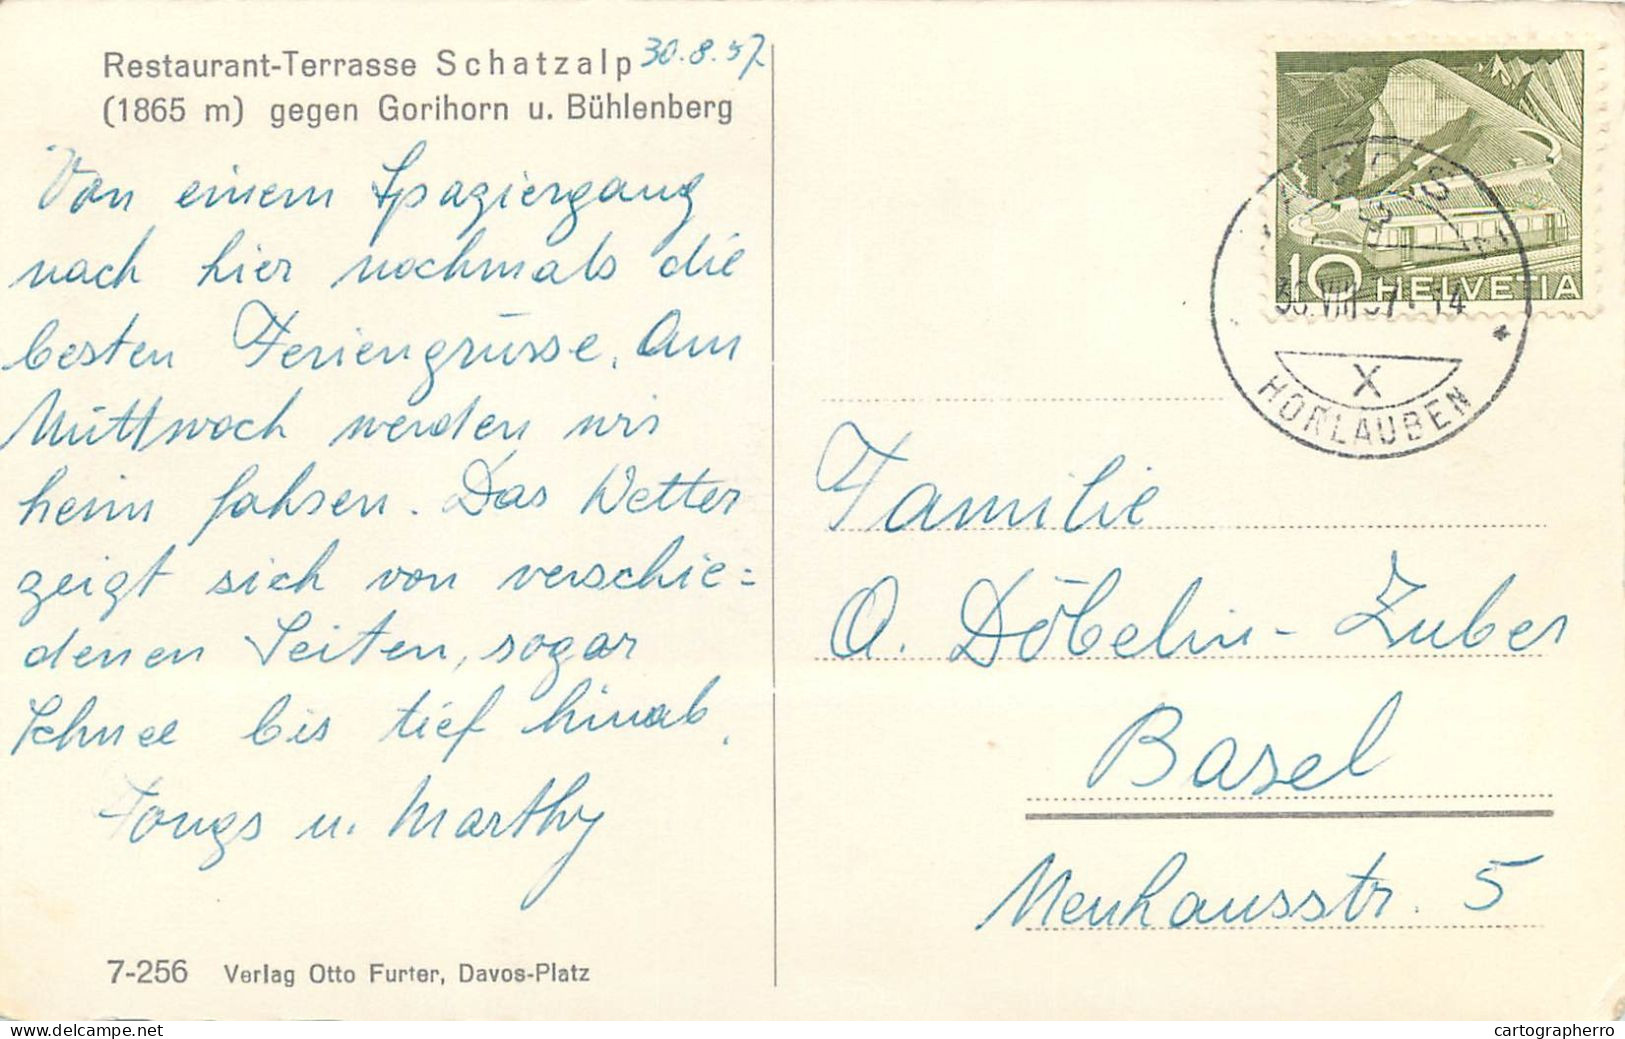 Restaurant-Terrasse Schatzalp 30.8.57
(1865 m) gegen Gorihorn u. Bühlenberg
Von einem Spaziergang
nach hier nochmals die
besten Feriengrüsse. Am
Mittwoch werden wir
heim fahren. Das Wetter
zeigt sich von verschie=
denen Seiten, sogar
Schnee bis tief hinab.
u. Marthy
7-256 Verlag Otto Furter, Davos-Platz
10 HELVETIA
X
HORLAUBEN
Familie
O. Döbelin-Zuber
Basel
Neuhausstr. 5
cartographerro